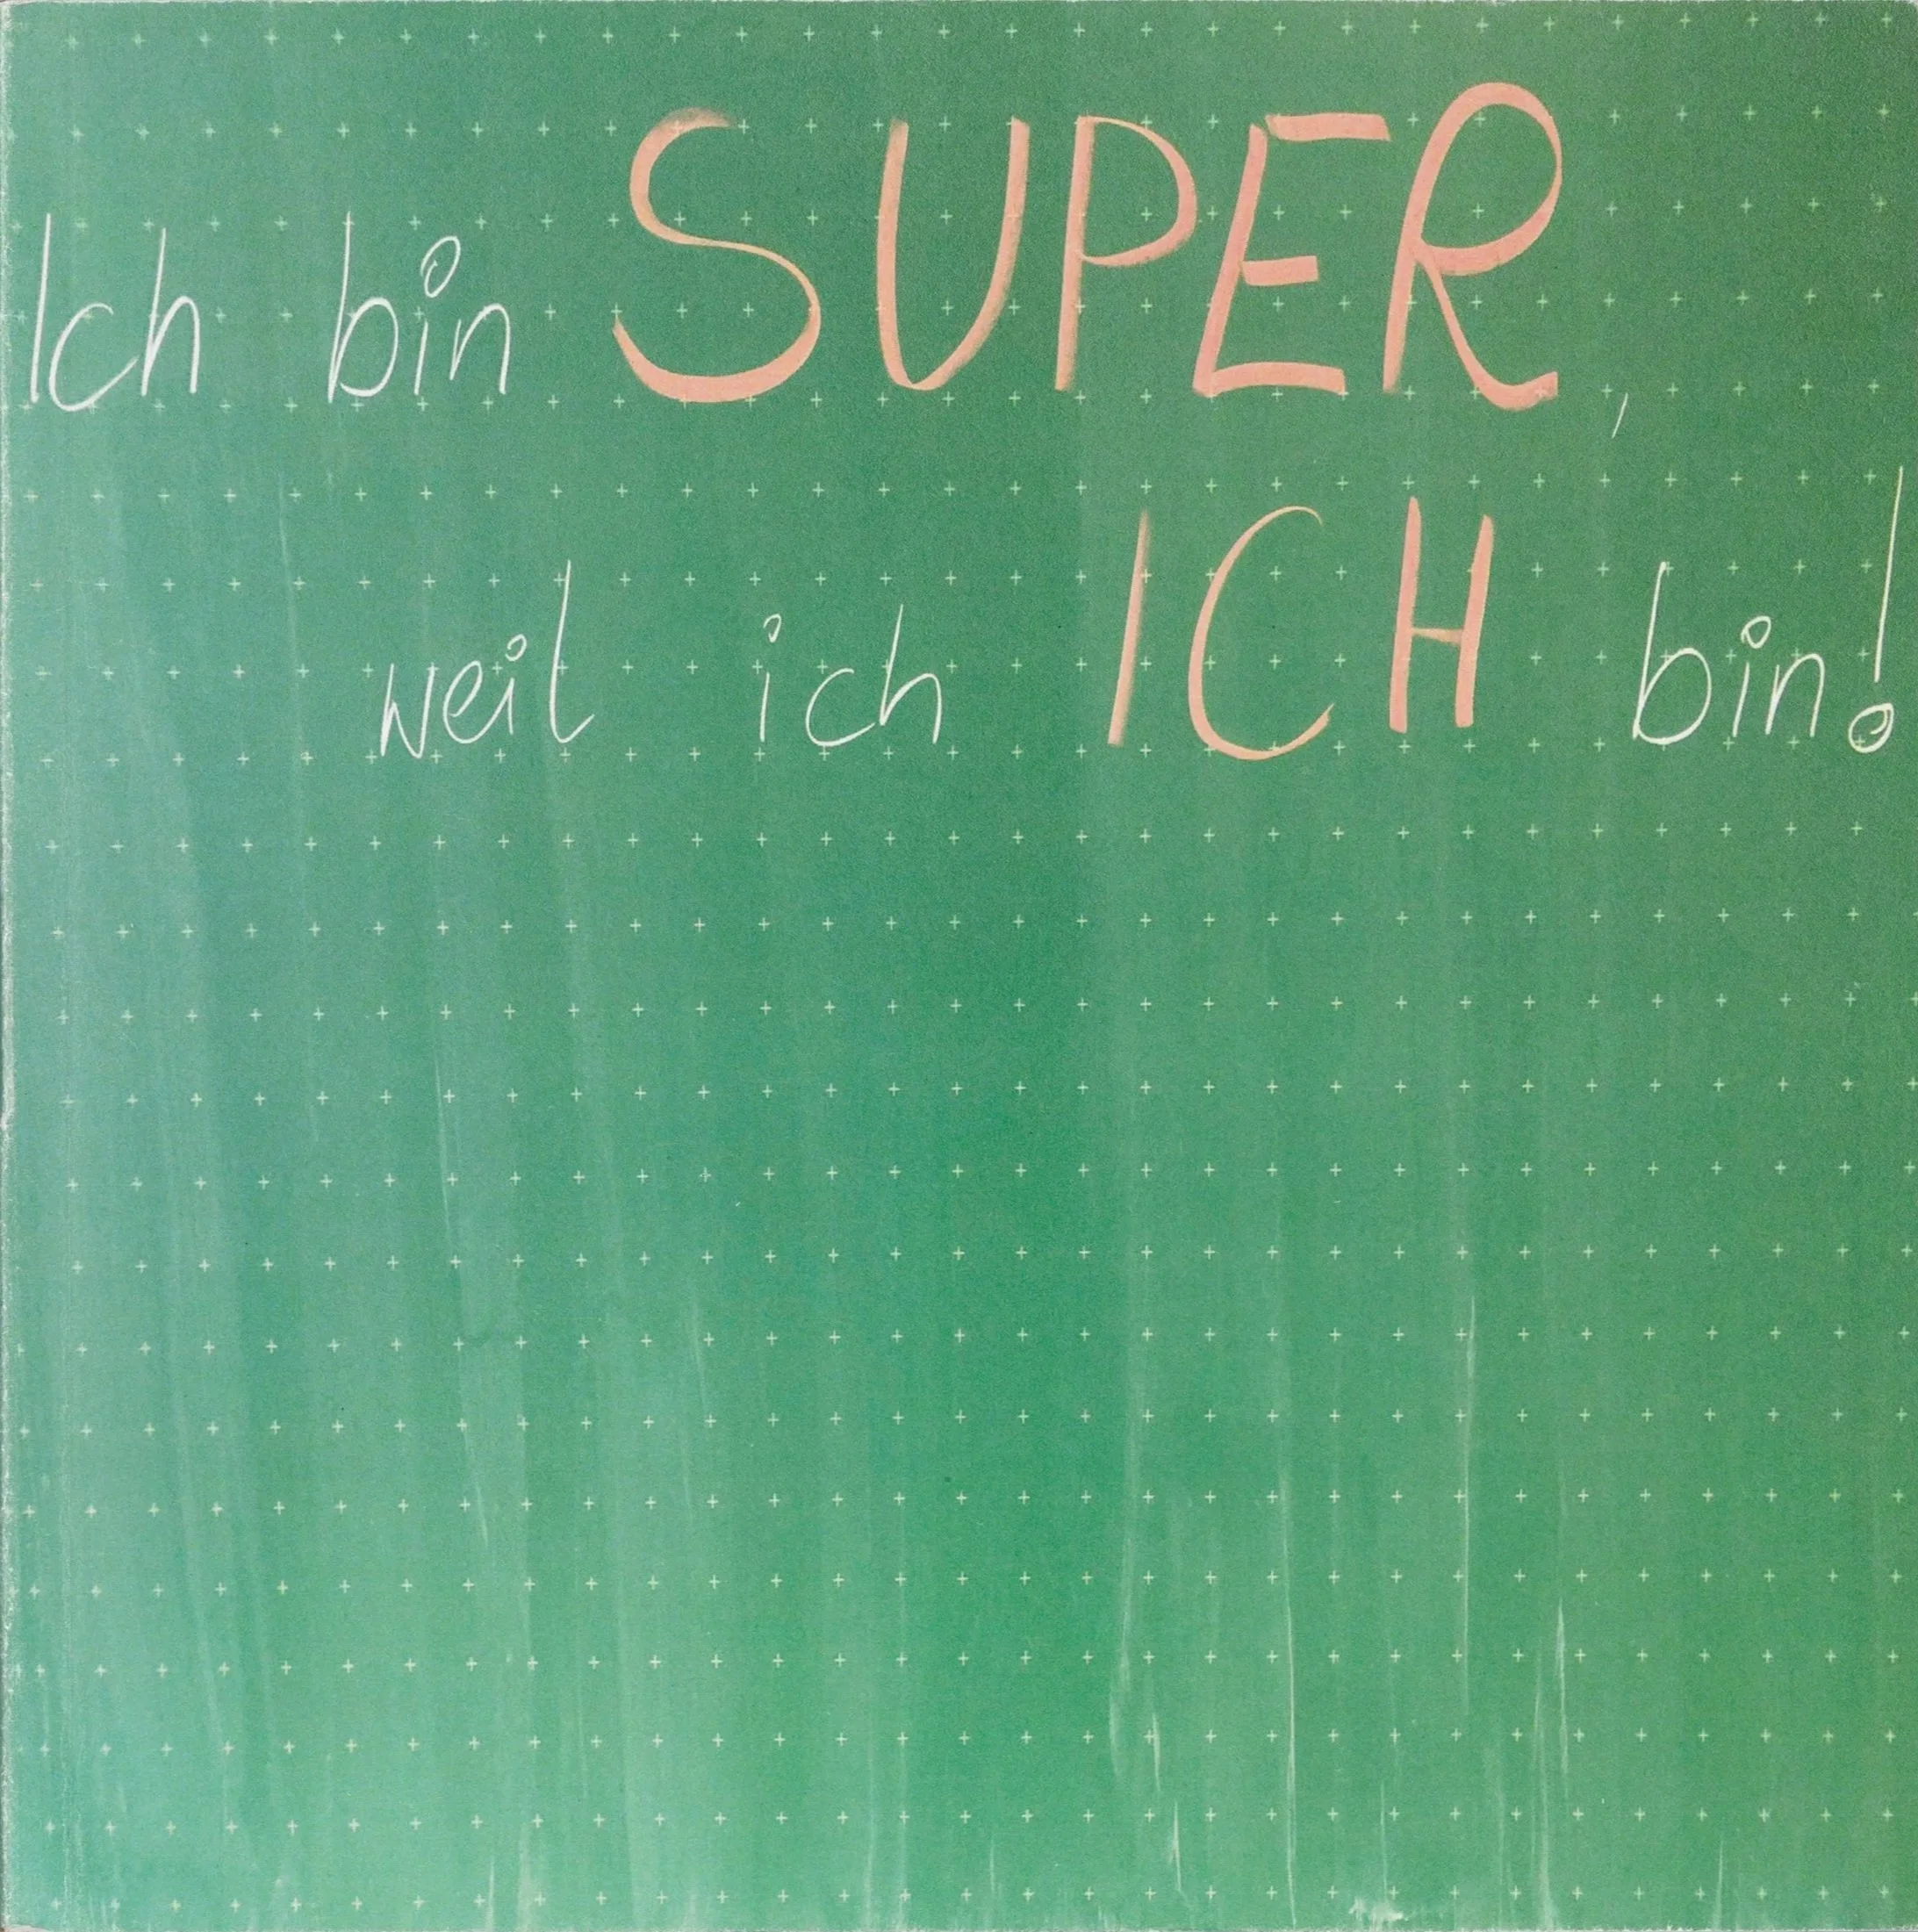 Ich bin SUPER,
weil ich ICH bin!